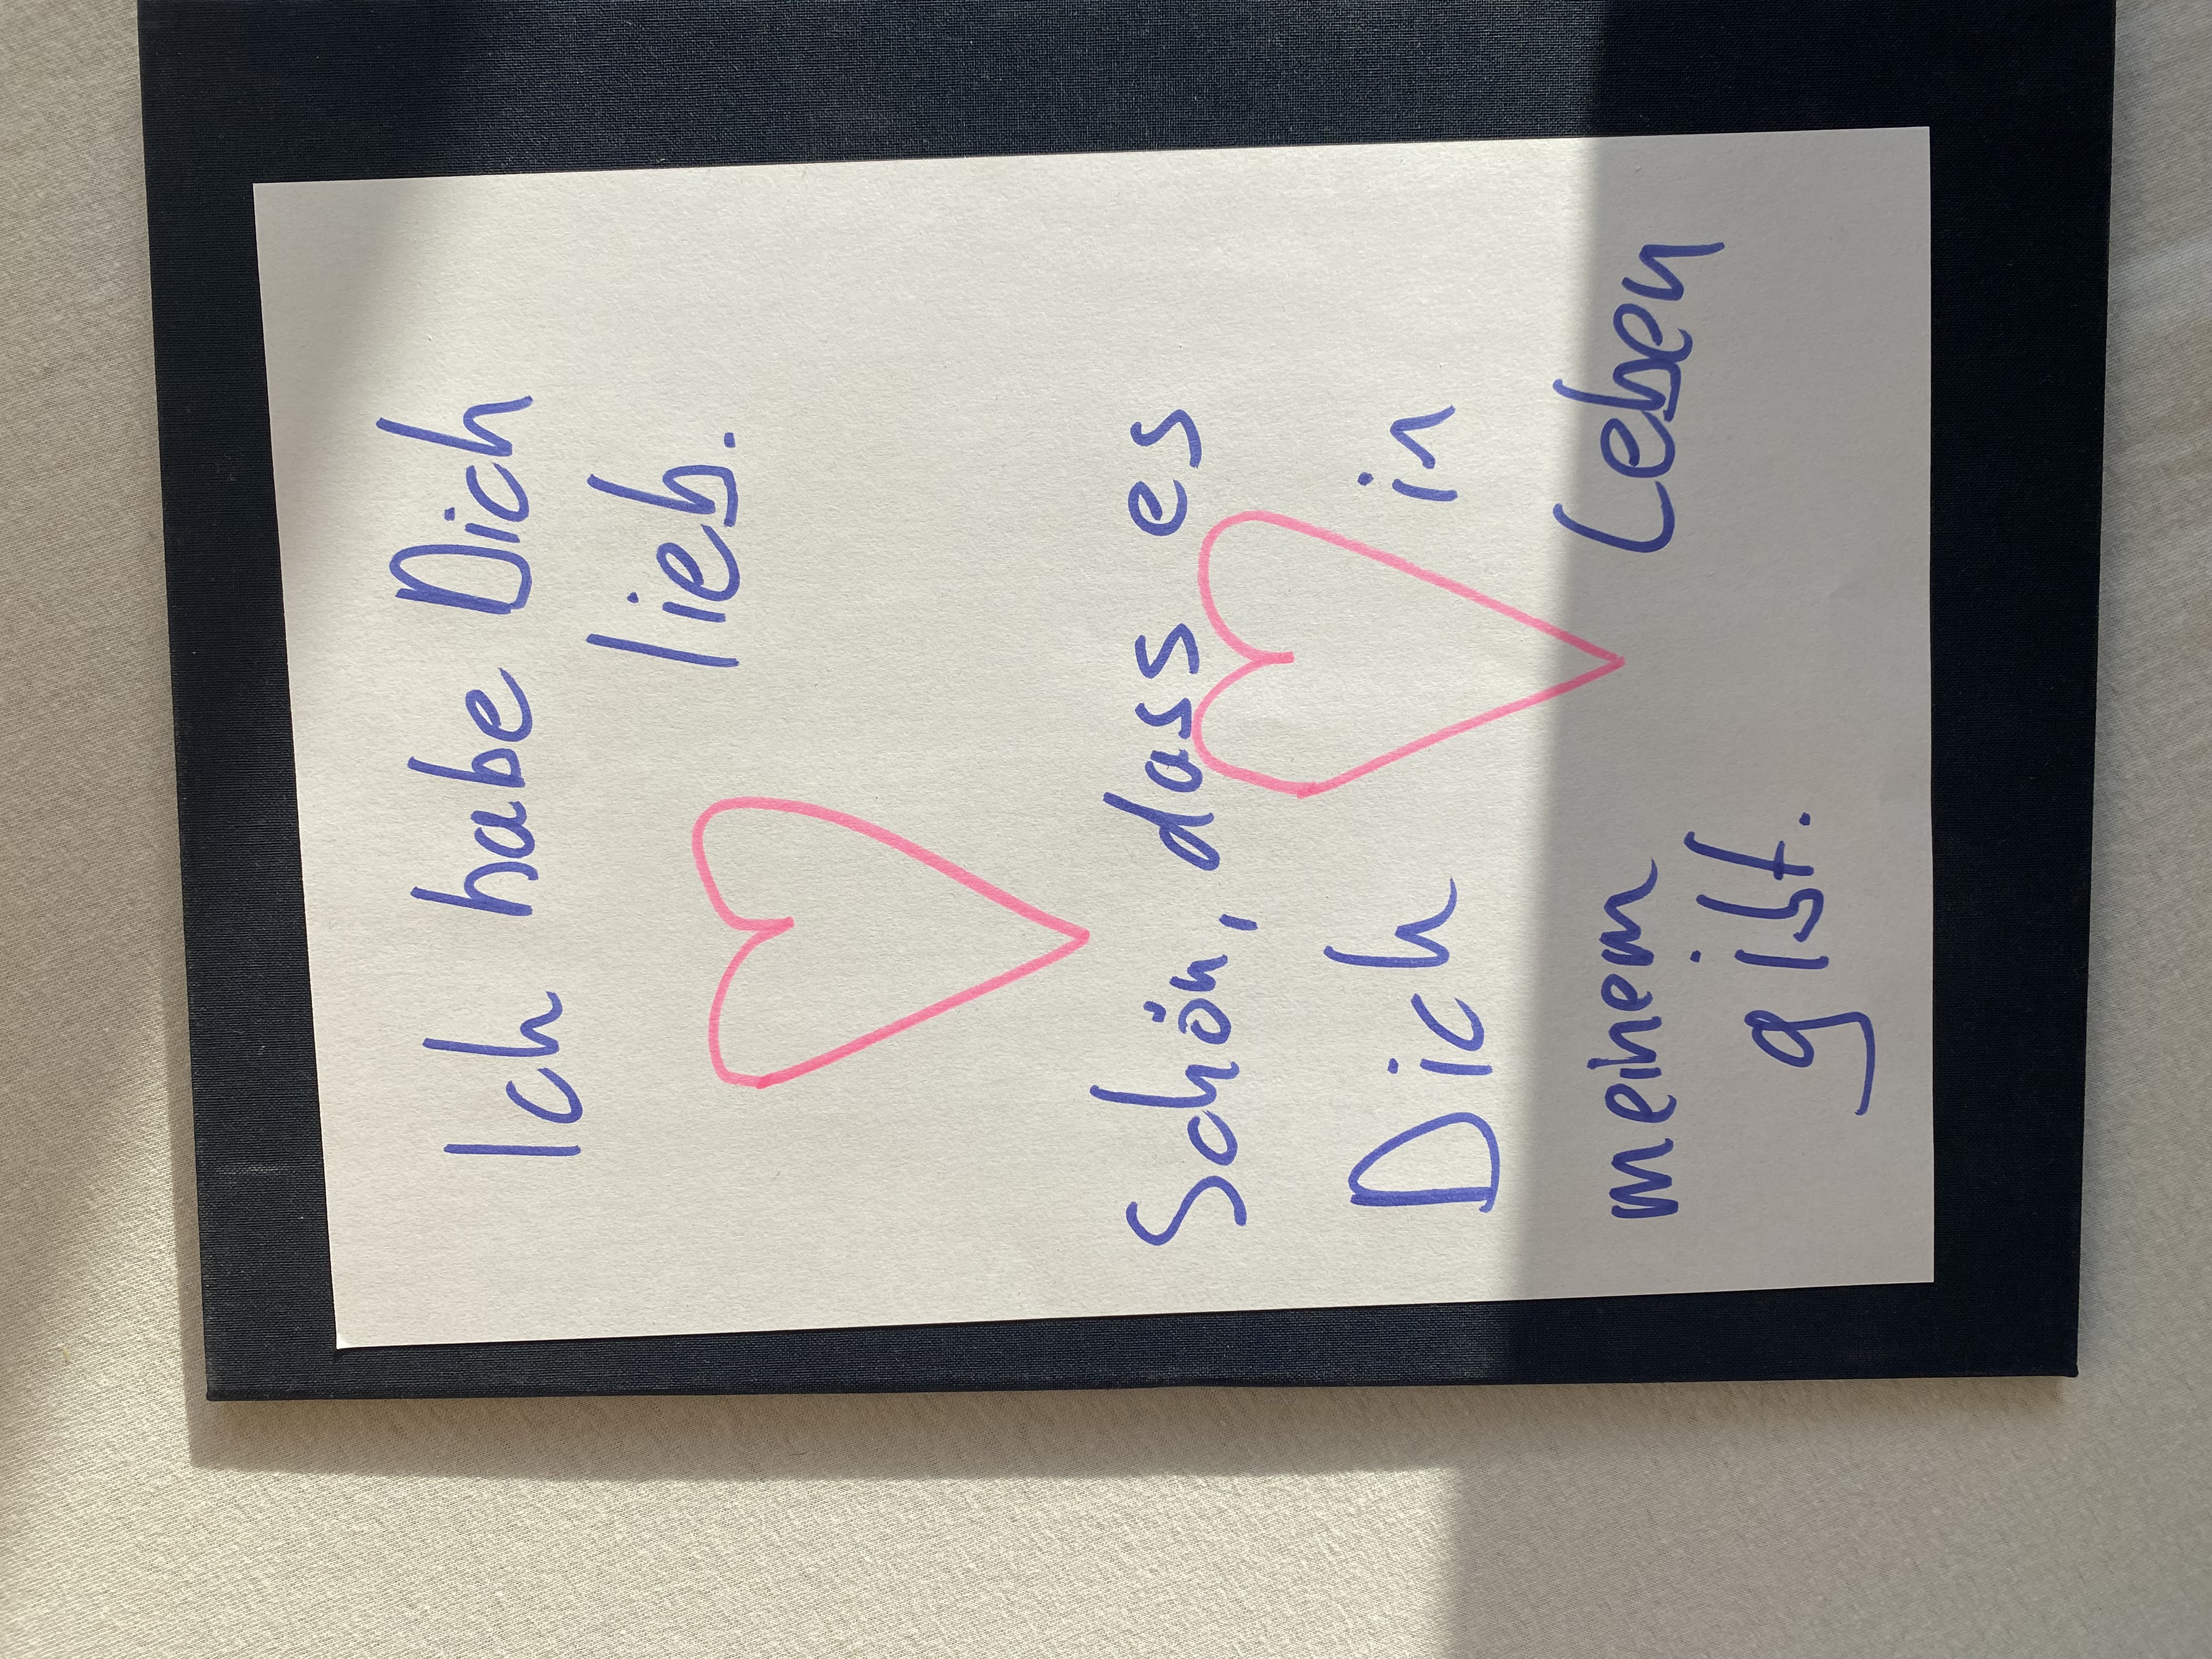 Ich habe Dich
lieb.
Schön, dass es
Dich in
meinem Leben
gibt.